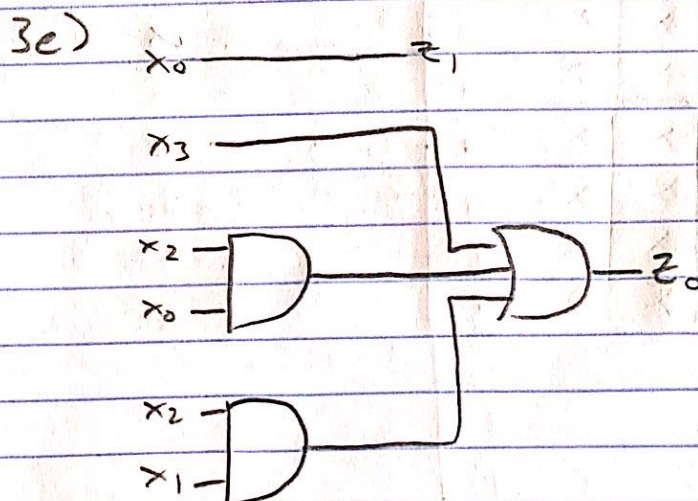 3e)
x₀ z₁
x₃
x₂
x₀
z₀
x₂
x₁